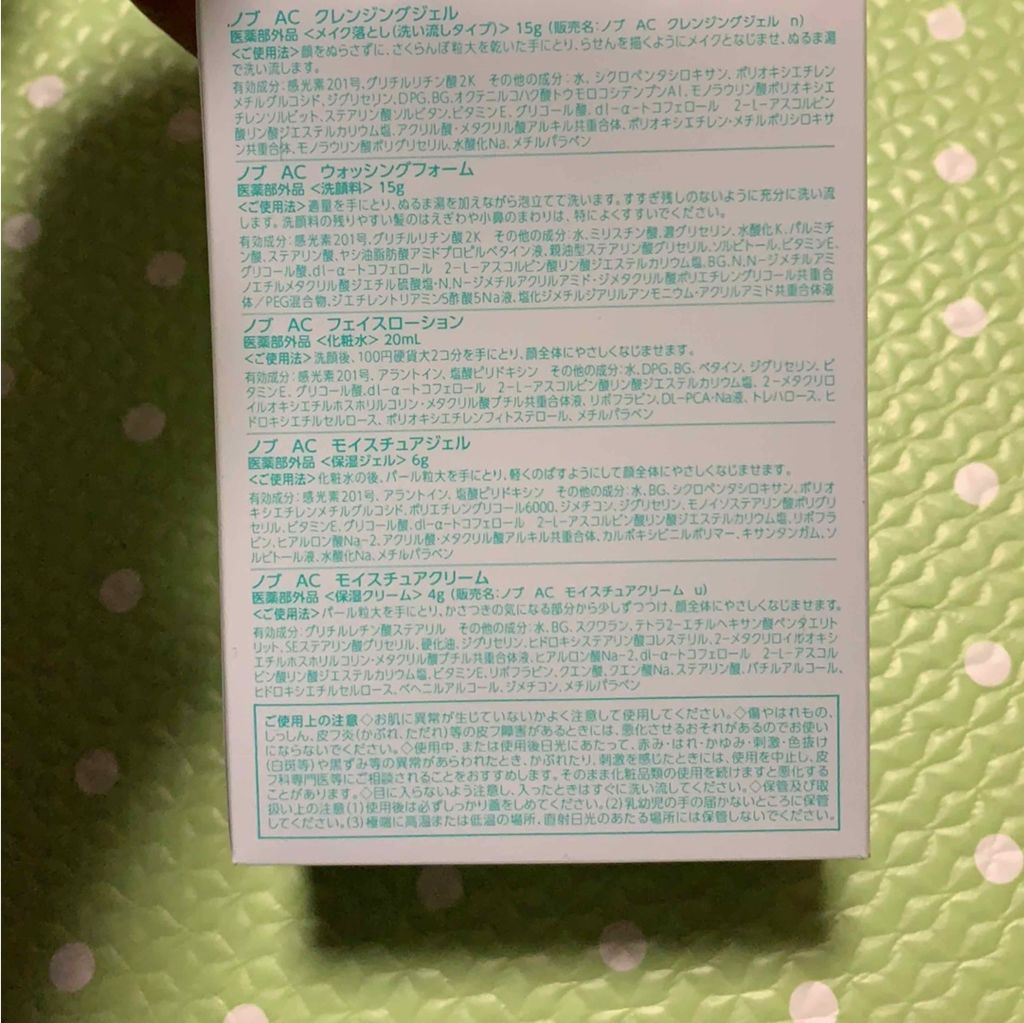 ノブ AC クレンジングジェル
医薬部外品 <メイク落とし(洗い流しタイプ)> 15g (販売名:ノブ AC クレンジングジェル n)
<ご使用法>顔をぬらさずに、さくらんぼ粒大を乾いた手にとり、らせんを描くようにメイクとなじませ、ぬるま湯
で洗い流します。
有効成分:感光素201号、グリチルリチン酸2K その他の成分:水、シクロペンタシロキサン、ポリオキシエチレン
メチルグルコシド、ジグリセリン、DPG、BG、オクテニルコハク酸トウモロコシデンプンAl、モノラウリン酸ポリオキシエ
チレンソルビット、ステアリン酸ソルビタン、ビタミンE、グリコール酸、dl-α-トコフェロール 2-L-アスコルビン
酸リン酸ジエステルカリウム塩、アクリル酸・メタクリル酸アルキル共重合体、ポリオキシエチレン・メチルポリシロキサ
ン共重合体、モノラウリン酸ポリグリセリル、水酸化Na、メチルパラベン
ノブ AC ウォッシングフォーム
医薬部外品 <洗顔料> 15g
<ご使用法>適量を手にとり、ぬるま湯を加えながら泡立てて洗います。すすぎ残しのないように充分に洗い流
します。洗顔料の残りやすい髪のはえぎわや小鼻のまわりは、特によくすすいでください。
有効成分:感光素201号、グリチルリチン酸2K その他の成分:水、ミリスチン酸、濃グリセリン、水酸化K、パルミチ
ン酸、ステアリン酸、ヤシ油脂肪酸アミドプロピルベタイン液、親油型ステアリン酸グリセリル、ソルビトール、ビタミンE、
グリコール酸、dl-α-トコフェロール 2-L-アスコルビン酸リン酸ジエステルカリウム塩、BG、N,N-ジメチルアミ
ノエチルメタクリル酸ジエチル硫酸塩・N,N-ジメチルアクリルアミド・ジメタクリル酸ポリエチレングリコール共重合
体/PEG混合物、ジエチレントリアミン5酢酸5Na液、塩化ジメチルジアリルアンモニウム・アクリルアミド共重合体液
ノブ AC フェイスローション
医薬部外品 <化粧水> 20mL
<ご使用法>洗顔後、100円硬貨大2コ分を手にとり、顔全体にやさしくなじませます。
有効成分:感光素201号、アラントイン、塩酸ピリドキシン その他の成分:水、DPG、BG、ベタイン、ジグリセリン、ビ
タミンE、グリコール酸、dl-α-トコフェロール 2-L-アスコルビン酸リン酸ジエステルカリウム塩、2-メタクリロ
イルオキシエチルホスホリルコリン・メタクリル酸ブチル共重合体液、リボフラビン、DL-PCA・Na液、トレハロース、ヒ
ドロキシエチルセルロース、ポリオキシエチレンフィトステロール、メチルパラベン
ノブ AC モイスチュアジェル
医薬部外品 <保湿ジェル> 6g
<ご使用法>化粧水の後、パール粒大を手にとり、軽くのばすようにして顔全体にやさしくなじませます。
有効成分:感光素201号、アラントイン、塩酸ピリドキシン その他の成分:水、BG、シクロペンタシロキサン、ポリオ
キシエチレンメチルグルコシド、ポリエチレングリコール6000、ジメチコン、ジグリセリン、モノイソステアリン酸ポリグリ
セリル、ビタミンE、グリコール酸、dl-α-トコフェロール 2-L-アスコルビン酸リン酸ジエステルカリウム塩、リボフラ
ビン、ヒアルロン酸Na-2、アクリル酸・メタクリル酸アルキル共重合体、カルボキシビニルポリマー、キサンタンガム、ソ
ルビトール液、水酸化Na、メチルパラベン
ノブ AC モイスチュアクリーム
医薬部外品 <保湿クリーム> 4g (販売名:ノブ AC モイスチュアクリーム u)
<ご使用法>パール粒大を手にとり、かさつきの気になる部分から少しずつつけ、顔全体にやさしくなじませます。
有効成分:グリチルレチン酸ステアリル その他の成分:水、BG、スクワラン、テトラ2-エチルヘキサン酸ペンタエリト
リット、SEステアリン酸グリセリル、硬化油、ジグリセリン、ヒドロキシステアリン酸コレステリル、2-メタクリロイルオキシ
エチルホスホリルコリン・メタクリル酸ブチル共重合体液、ヒアルロン酸Na-2、dl-α-トコフェロール 2-L-アスコル
ビン酸リン酸ジエステルカリウム塩、ビタミンE、リボフラビン、クエン酸、クエン酸Na、ステアリン酸、バチルアルコール、
ヒドロキシエチルセルロース、ベヘニルアルコール、ジメチコン、メチルパラベン
ご使用上の注意 ◇お肌に異常が生じていないかよく注意して使用してください。◇傷やはれもの、
しっしん、皮フ炎(かぶれ、ただれ)等の皮フ障害があるときには、悪化させるおそれがあるのでお使い
にならないでください。◇使用中、または使用後日光にあたって、赤み・はれ・かゆみ・刺激・色抜け
(白斑等)や黒ずみ等の異常があらわれたとき、かぶれたり、刺激を感じたときには、使用を中止し、皮
フ科専門医等にご相談されることをおすすめします。そのまま化粧品類の使用を続けますと悪化する
ことがあります。◇目に入らないよう注意し、入ったときはすぐに洗い流してください。◇保管及び取
扱い上の注意(1)使用後は必ずしっかり蓋をしめてください。(2)乳幼児の手の届かないところに保管
してください。(3)極端に高温または低温の場所、直射日光のあたる場所には保管しないでください。